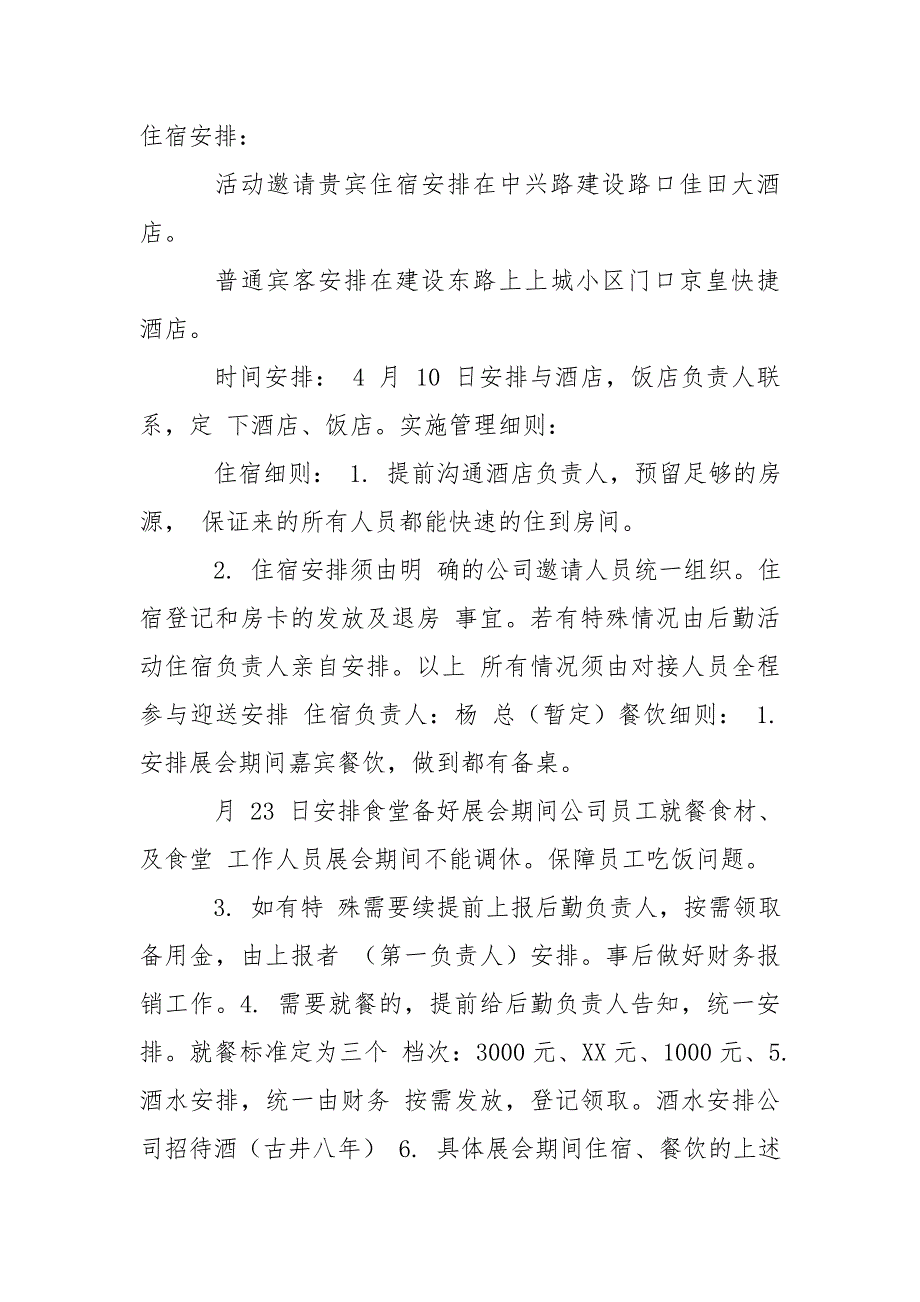 住宿安排：
活动邀请贵宾住宿安排在中兴路建设路口佳田大酒
店。
普通宾客安排在建设东路上上城小区门口京皇快捷
酒店。
时间安排： 4 月 10 日安排与酒店，饭店负责人联
系，定 下酒店、饭店。实施管理细则：
住宿细则： 1. 提前沟通酒店负责人，预留足够的房
源， 保证来的所有人员都能快速的住到房间。
2. 住宿安排须由明 确的公司邀请人员统一组织。住
宿登记和房卡的发放及退房 事宜。若有特殊情况由后勤活
动住宿负责人亲自安排。以上 所有情况须由对接人员全程
参与迎送安排 住宿负责人：杨 总（暂定）餐饮细则： 1.
安排展会期间嘉宾餐饮，做到都有备桌。
月 23 日安排食堂备好展会期间公司员工就餐食材、
及食堂 工作人员展会期间不能调休。保障员工吃饭问题。
3. 如有特 殊需要续提前上报后勤负责人，按需领取
备用金，由上报者 （第一负责人）安排。事后做好财务报
销工作。4. 需要就餐的，提前给后勤负责人告知，统一安
排。就餐标准定为三个 档次：3000 元、XX 元、1000 元、5.
酒水安排，统一由财务 按需发放，登记领取。酒水安排公
司招待酒（古井八年） 6. 具体展会期间住宿、餐饮的上述